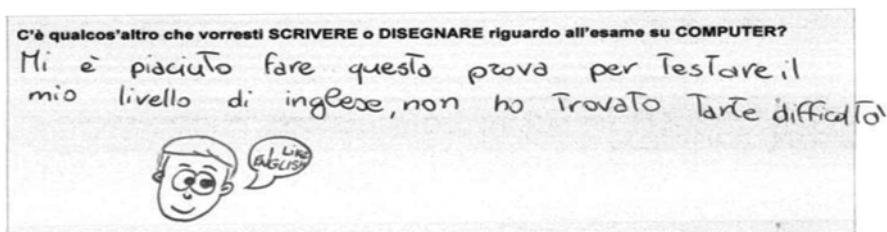 C'è qualcos'altro che vorresti SCRIVERE o DISEGNARE riguardo all'esame su COMPUTER?
Mi è piaciuto fare questa prova per testare il
mio livello di inglese, non ho trovato tante difficoltà
I LIKE
ENGLISH